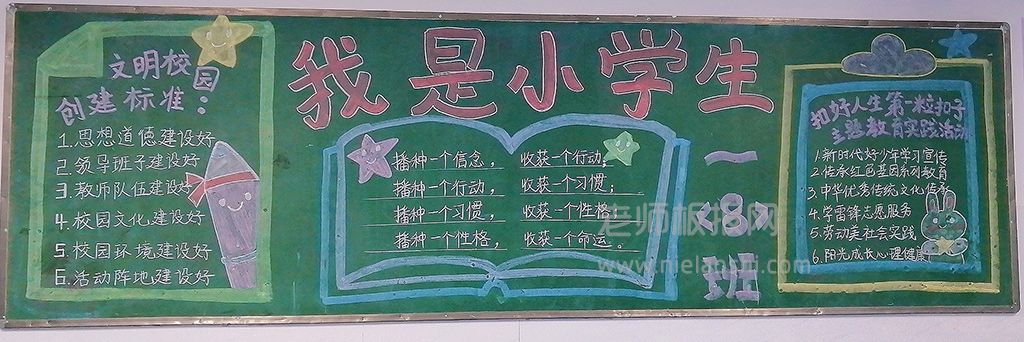 我是小学生
文明校园
创建标准：
1.思想道德建设好
2.领导班子建设好
3.教师队伍建设好
4.校园文化建设好
5.校园环境建设好
6.活动阵地建设好
播种一个信念，收获一个行动；
播种一个行动，收获一个习惯；
播种一个习惯，收获一个性格；
播种一个性格，收获一个命运。
一
<8>
班
扣好人生第一粒扣子
主题教育实践活动
1.新时代好少年学习宣传
2.传承红色基因系列教育
3.中华优秀传统文化传承
4.学雷锋志愿服务
5.劳动美社会实践
6.阳光成长心理健康
老师板报网